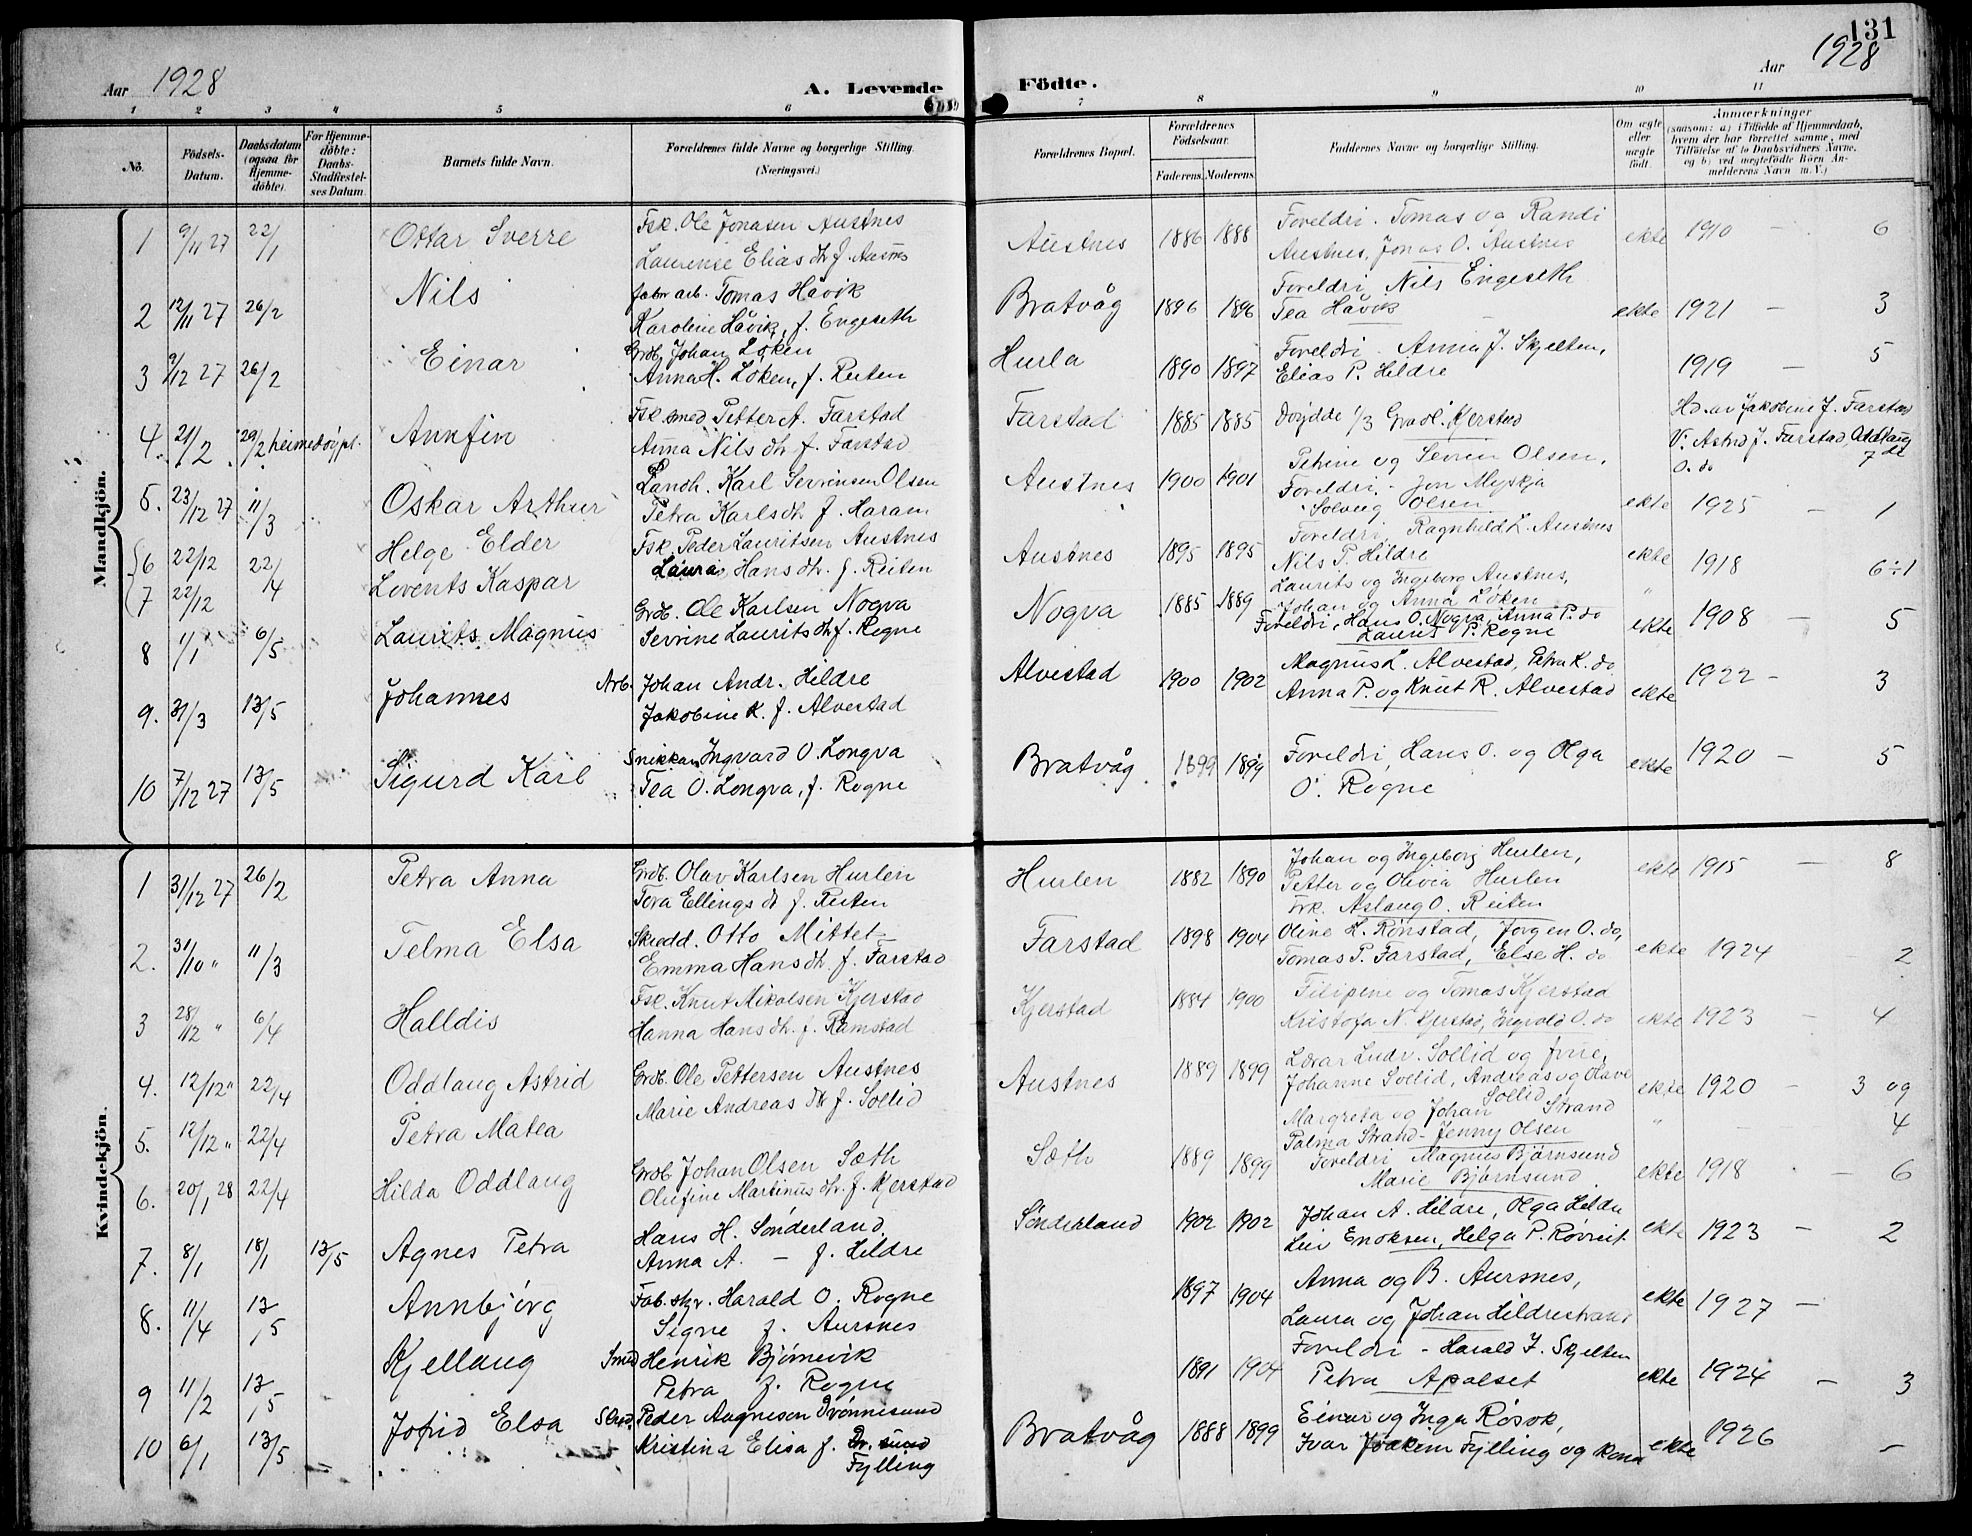 131
Aar 1928 A. Levende Födte. Aar 1928
1 2 3 4 5 6 7 8 9 10 11
No. Födsels-Datum. Daabsdatum (ogsaa for Hjemme-döbte). For Hjemme-döbte: Daabs-Stadfæstel-ses Datum. Barnets fulde Navn. Forældrenes fulde Navne og borgerlige Stilling. (Næringsvei.) Forældrenes Bopæl. Forældrenes Födselsaar. Faderens. Moderens. Faddernes Navne og borgerlige Stilling. Om ægte eller uægte födt. Anmærkninger (saasom: a) i Tilfælde af Hjemmedaab, hvem der har forrettet samme, med Tilföielse af to Daabsvidners Navne, og b) ved uægtefödte Börn An-melderens Navn m. V.)
Mandkjön.
1 9/11 27 22/1 Ottar Sverre Fsk. Ole Jonasen Austnes Austnes 1886 1888 Foreldri. Tomas og Randi ekte 1910 - 6
Laurense Elias dtr f. Austnes, Jonas O. Austnes
2 12/11 27 26/2 Nils fabr arb. Tomas Håvik Bratvåg 1896 1896 Foreldri, Nils Engeseth ekte 1921 - 3
Karoline Håvik, f. Engeseth Tea Håvik
3 9/12 27 26/2 Einar Grdb. Johan Løken Hurla 1890 1897 Foreldri Anna J. Skjelten, 1919 - 5
Anna H. Løken, f. Reiten Elias P. Hildre
4. 21/2 29/2 heimedøypt. Annfin Fsk. smed. Petter A. Farstad Farstad 1885 1885 Døydde 1/3 Gravl. Kjerstad Hd. av Jakobine J. Farstad
Anna Nils dtr f. Farstad V. Astrid J. Farstad, Oddlaug O. do
5. 23/12 27 11/3 Oskar Arthur Landh. Karl Sevrinsen Olsen Austnes 1900 1901 Petrine og Sevrin Olsen, ekte 1925 - 1
Petra Karlsdtr. f. Haram Foreldri, Jon Myskja
Solvug Olsen
6 22/12 22/4 Helge Elder Fsk. Peder Lauritsen Austnes Austnes 1895 1895 Foreldri, Ragnhild L. Austnes ekte 1918 6÷1
Laura Hansdtr. f. Reiten Nils P. Hildre
7 22/12 Lorents Kaspar Laurits og Ingeborg Austnes, "
Johan og Anna Løken
8 1/1 6/5 Laurits Magnus Grdb. Ole Karlsen Nogva Nogva 1885 1889 Foreldri, Hans O. Nogva, Anna P. do ekte 1908 - 5
Sevrine Lauritsdtr f. Rogne Laurits P. Rogne
9. 31/3 13/5 Johannes Arb. Johan Andr. Hildre Alvestad 1900 1902 Magnus L. Alvestad, Petra K. do ekte 1922 - 3
Jakobine K. f. Alvestad Anna P. og Knut R. Alvestad
10 7/12 27 13/5 Sigurd Karl Snikkar Ingvard O. Longva Bratvåg 1899 1899 Foreldri, Hans O. og Olga ekte 1920 - 5
Tea O. Longva, f. Rogne O. Rogne
Kvindekjön.
1 31/12 27 26/2 Petra Anna Grdb. Olav Karlsen Hurlen Hurlen 1882 1890 Johan og Ingeborg Hurlen, ekte 1915 - 8
Tora Ellings dt f. Reiten Petter og Olivia Hurlen
Frk. Aslaug O. Reiten
2. 31/10 " 11/3 Telma Elsa Skredd. Otto Mittet Farstad 1898 1904 Oline H. Rønstad, Jørgen O. do, ekte 1924 2
Emma Hansdtr. f. Farstad Tomas P. Farstad, Else H. do
3 28/12 " 6/4 Halldis Fsk. Knut Mikalsen Kjerstad Kjerstad 1884 1900 Filipine og Tomas Kjerstad ekte 1923 - 4
Hanna Hansdtr. f. Ramstad Kristofa N. Kjerstad, Ingvald O. do
4. 12/12 " 22/4 Oddlaug Astrid Grdb. Ole Pettersen Austnes Austnes 1889 1899 Lærar Ludv. Sollid og frue, ekte 1920 - 3 og
Marie Andreas dtr f. Sollid Johanne Sollid, Andreas og Olave Sollid
5. 12/12 " 22/4 Petra Matea Margreta og Johan Strand " 4
Palma Strand - Jenny Olsen
6. 20/1 28 22/4 Hilda Oddlaug Grdb. Johan Olsen Sæth Sæth 1889 1899 Foreldri Magnus Bjørnsund ekte 1918 - 6
Olufine Martinus dtr. f. Kjerstad Marie Bjørnsund
7. 8/1 18/1 13/5 Agnes Petra Hans H. Sønderland, Sønderland 1902 1902 Johan A. Hildre, Olga Hildre ekte 1923 - 2
Anna A. - f. Hildre Leiv Enoksen, Helga P. Røvreit
8. 11/4 13/5 Annbjørg Fab. skr. Harald O. Rogne 1897 1904 Anna og B. Aursnes, ekte 1927 -
Signe f. Aursnes Laura og Johan Hildrestrand
9 11/2 13/5 Kjellaug Smed Henrik Bjørnevik 1891 1904 Foreldri - Harald J. Skjelten ekte 1924 - 3
Petra f. Rogne Petra Apalset
10 6/1 13/5 Jofrid Elsa Peder Aagneson Drønnesund Bratvåg 1888 1899 Einar og Inga Røsok, ekte 1926 -
Kristina Elisa f. Fylling Ivar Joakim Fylling og kona